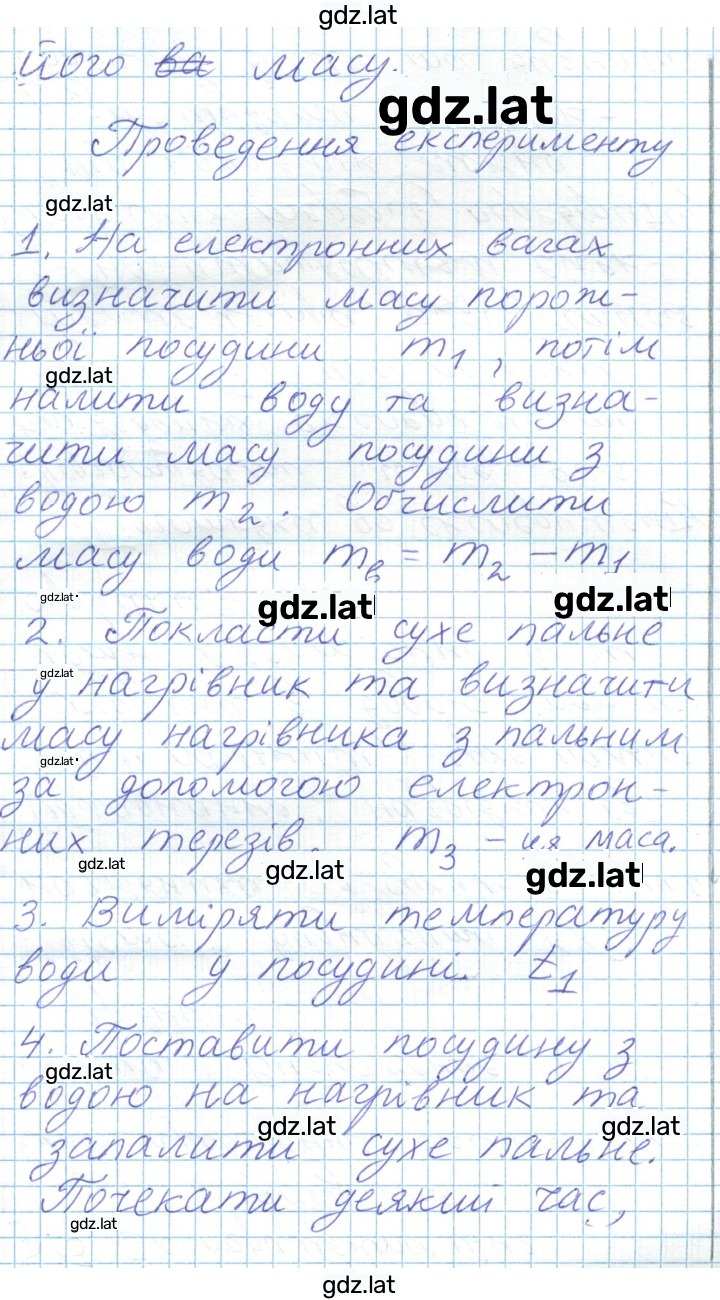 gdz.lat
його ва масу.
gdz.lat
Проведення експерименту
gdz.lat
1. На електронних вагах
визначити масу порож-
ньої посудини m1, потім
gdz.lat
налити воду та визна-
чити масу посудини з
водою m2. Обчислити
масу води mв = m2 – m1
gdz.lat gdz.lat gdz.lat
2. Покласти сухе пальне
gdz.lat
у нагрівник та визначити
масу нагрівника з пальним
gdz.lat
за допомогою електрон-
них терезів. m3 – маса.
gdz.lat gdz.lat gdz.lat
3. Виміряти температуру
води у посудині. t1
4. Поставити посудину з
gdz.lat
водою на нагрівник та
gdz.lat gdz.lat
запалити сухе пальне.
Почекати деякий час,
gdz.lat
gdz.lat